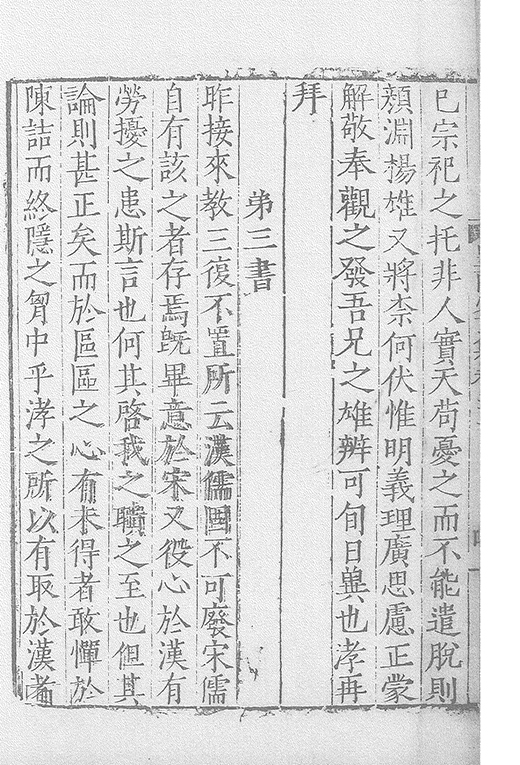 已宗祀之托非人實天苟憂之而不能遣脫則
顏淵楊雄又將柰何伏惟明義理廣思慮正蒙
解敬奉觀之發吾兄之雄辨可旬日冀也孝再
拜
苐三書
昨接來教三復不置所云漢儒固不可廢宋儒
自有該之者存焉既畢意於宋又役心於漢有
勞擾之患斯言也何其啓我之聵之至也但其
論則甚正矣而於區區之心有未得者敢憚於
陳詰而終隱之胷中乎孝之所以有取於漢者